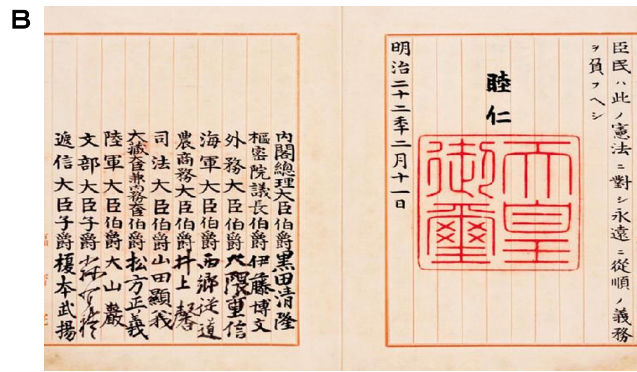 B
臣民ハ此ノ憲法ニ對シ永遠ニ從順ノ義務
ヲ負フヘシ
睦仁
天皇
御璽
明治二十二年二月十一日
内閣總理大臣伯爵黒田清隆
樞密院議長伯爵伊藤博文
外務大臣伯爵大隈重信
海軍大臣伯爵西郷從道
農商務大臣伯爵井上馨
司法大臣伯爵山田顯義
大藏大臣兼内務大臣伯爵松方正義
陸軍大臣伯爵大山巖
文部大臣子爵森有禮
遞信大臣子爵榎本武揚